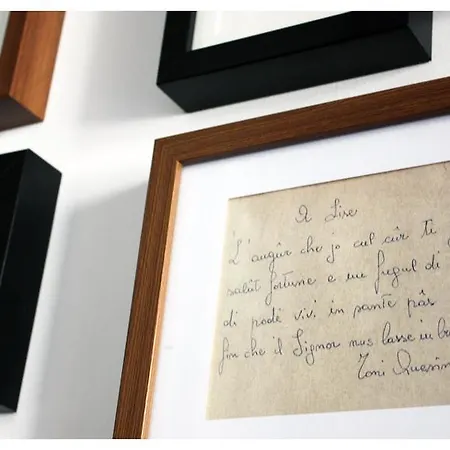 A Lise
L'augûr che jo cul cûr ti
salût fortune e un fregul di
di podê vivi in sante pâs
fin che il Signor nus lasse in ba
Toni